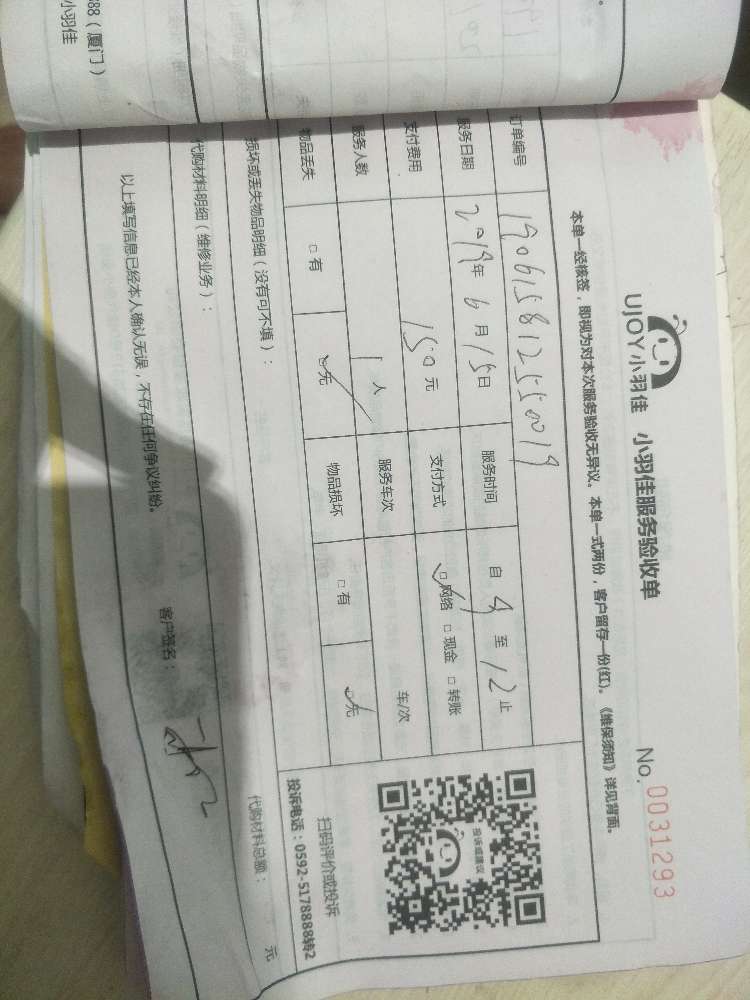 UJOY小羽佳 小羽佳服务验收单
No. 0031293
本单一经核签，即视为对本次服务验收无异议。本单一式两份，客户留存一份(红)。《维保须知》详见背面。
订单编号 190615812550019
服务日期 2019年6月15日 服务时间 自 9 至 12 止
支付费用 150元 支付方式 ☑网络 □现金 □转账
服务人数 1人 服务车次 车/次
物品丢失 □有 ☑无 物品损坏 □有 ☑无
损坏或丢失物品明细（没有可不填）：
代购材料明细（维修业务）：
代购材料总额： 元
以上填写信息已经本人确认无误，不存在任何争议纠纷。
客户签名：
投诉或建议
扫码评价或投诉
投诉电话：0592-5178888转2
888（厦门）
小羽佳